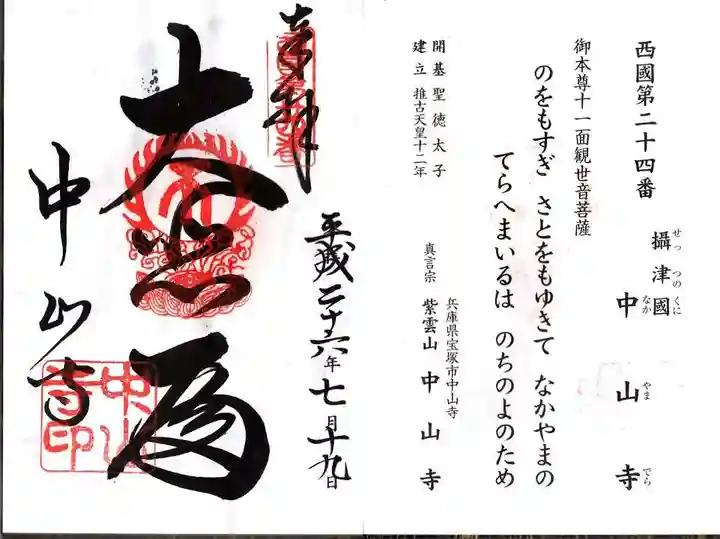 西國第二十四番
攝津國 中山寺
せっ つの くに なか やま でら
御本尊十一面観世音菩薩
のをもすぎ さとをもゆきて なかやまの
てらへまいるは のちのよのため
開基 聖徳太子
建立 推古天皇十二年
兵庫県宝塚市中山寺
真言宗 紫雲山中山寺
奉拝
平成二十六年七月十九日
大悲殿
中山寺
中山寺印